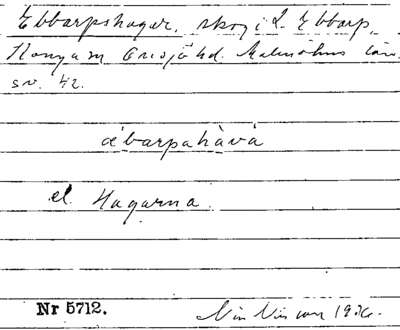 Ebbarpshagar, skog i L. Ebbarp,
Konga sn Onsjö hd. Malmöhus län
sv. 42.
æ̀barpahàva
el. Hagarna.
Nr 5712.
1936.